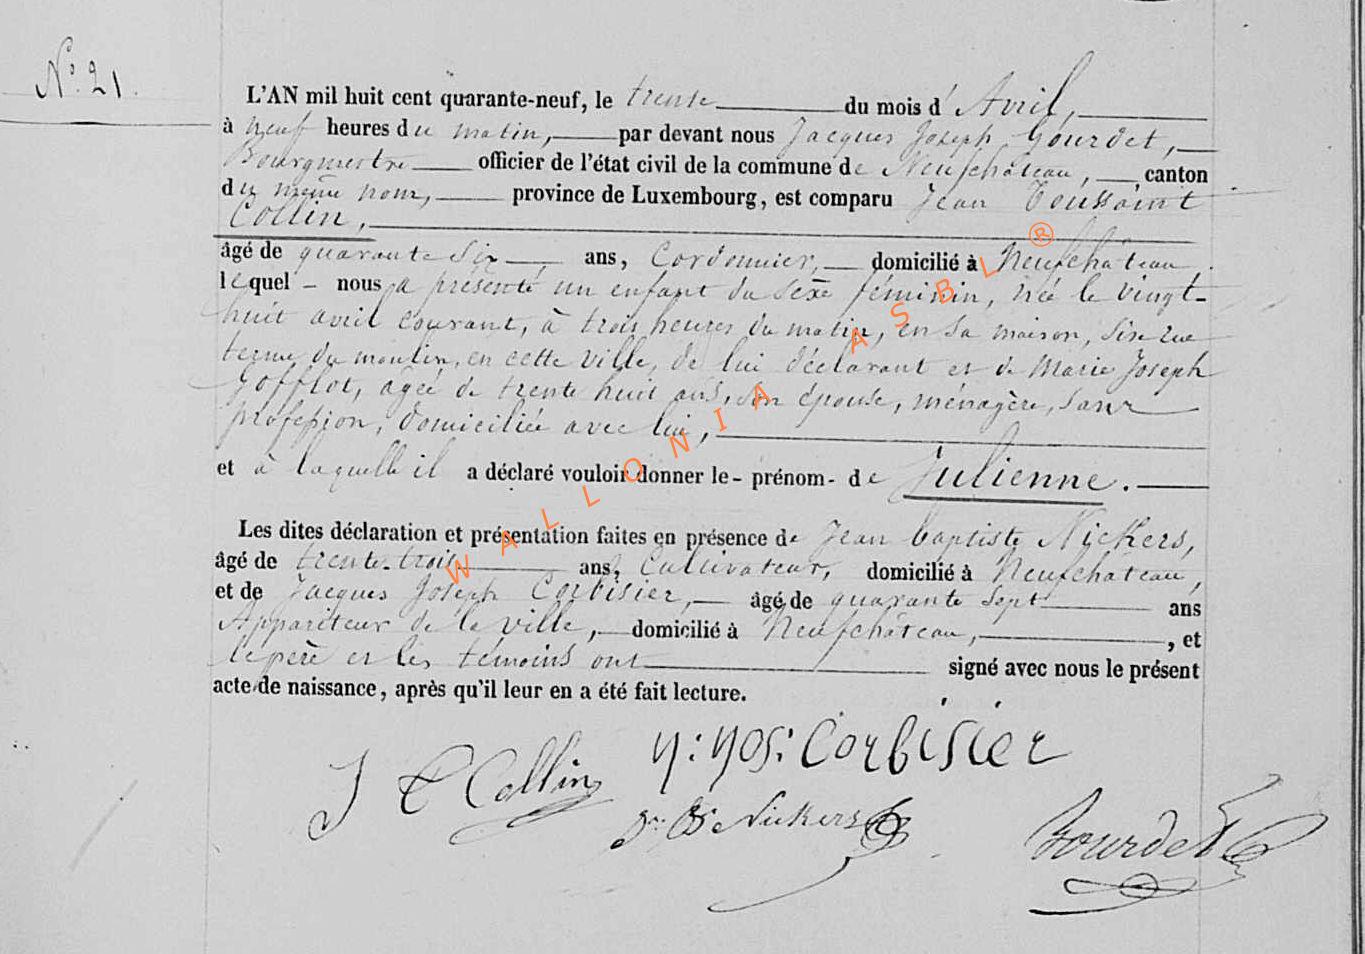 N° 21.
L'AN mil huit cent quarante-neuf, le trente du mois d' Avril,
à neuf heures du matin, par devant nous Jacques Joseph Gourdet,
Bourgmestre officier de l'état civil de la commune de Neufchâteau, canton
du même nom, province de Luxembourg, est comparu Jean Toussaint
Collin,
âgé de quarante six ans, Cordonnier, domicilié à Neufchâteau,
lequel - nous a présenté un enfant du sexe féminin, née le vingt-
huit avril courant, à trois heures du matin, en sa maison, sise rue
terme du moulin, en cette ville, de lui déclarant et de Marie Joseph
Gofflot, agée de trente huit ans, son épouse, ménagère, sans
profession, domiciliée avec lui,
et à laquelle il a déclaré vouloir donner le - prénom - de Julienne.
Les dites déclaration et présentation faites en présence de Jean baptiste Nickers,
âgé de trente-trois ans, Cultivateur, domicilié à Neufchâteau,
et de Jacques Joseph Corbisier, âgé de quarante sept ans
Appariteur de la ville, domicilié à Neufchâteau, , et
le père et les témoins ont signé avec nous le présent
acte de naissance, après qu'il leur en a été fait lecture.
J T Collin
J: Jos: Corbisier
Jn Bte Nickers
Gourdet
WALLONIA ASBL ®